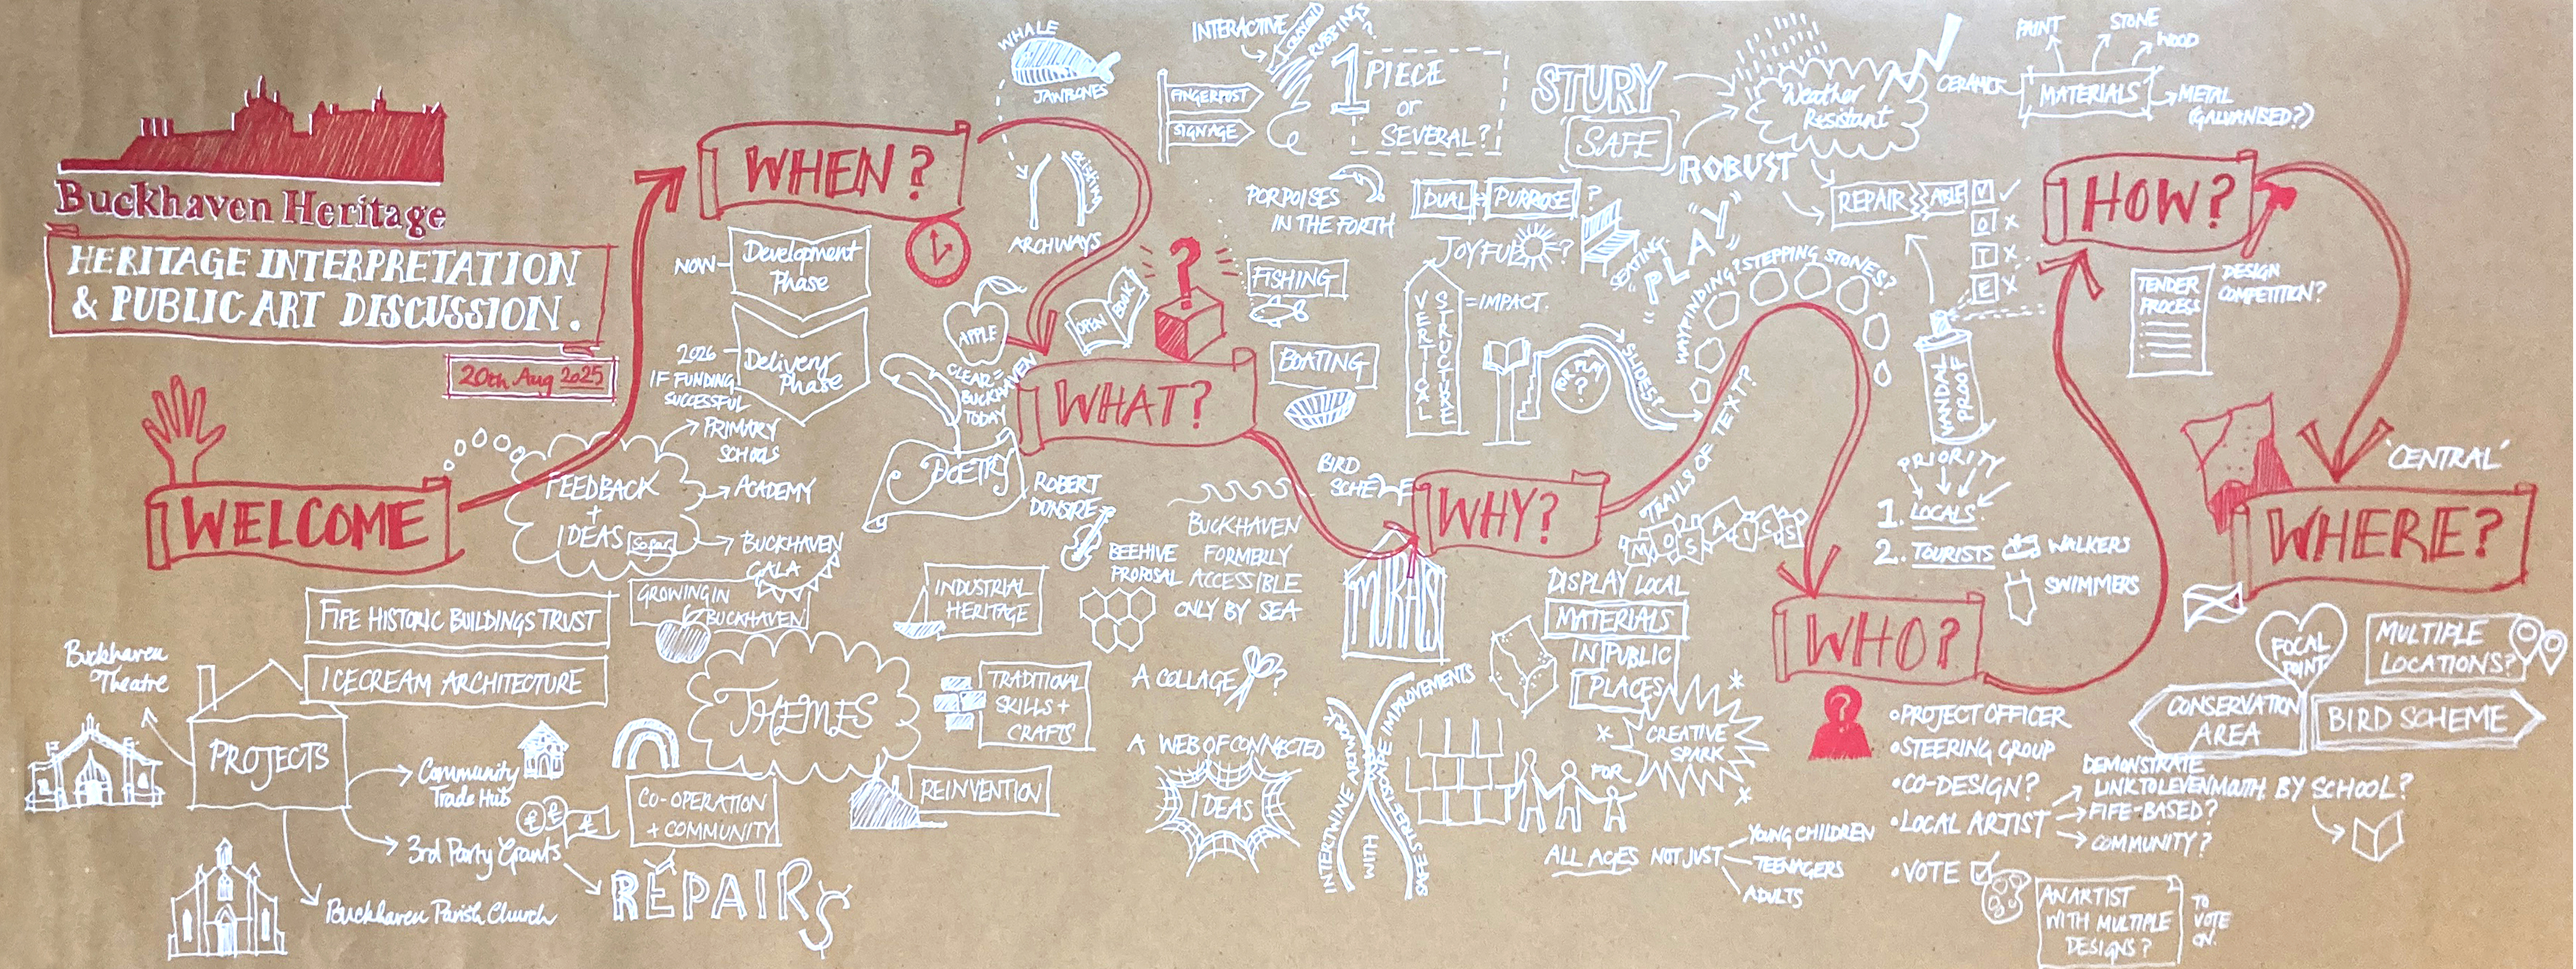 Buckhaven Heritage
HERITAGE INTERPRETATION
& PUBLIC ART DISCUSSION.
20th Aug 2025
WELCOME
FEEDBACK
+
IDEAS So far
PRIMARY
SCHOOLS
ACADEMY
BUCKHAVEN
GALA
FIFE HISTORIC BUILDINGS TRUST
ICECREAM ARCHITECTURE
PROJECTS
Buckhaven
Theatre
Community
Trade Hub
3rd Party Grants
Buckhaven Parish Church
REPAIRS
WHEN?
NOW
Development
Phase
2026
IF FUNDING
SUCCESSFUL
Delivery
Phase
THEMES
GROWING IN
BUCKHAVEN
INDUSTRIAL
HERITAGE
TRADITIONAL
SKILLS +
CRAFTS
REINVENTION
CO-OPERATION
+ COMMUNITY
WHAT?
WHALE
JAWBONES
ARCHWAYS
MARKERS
APPLE
CLEAR =
BUCKHAVEN
TODAY
OPEN BOOK
BUCKHAVEN
POETRY
ROBERT
DUNSIRE
BEEHIVE
PROPOSAL
BUCKHAVEN
FORMERLY
ACCESSIBLE
ONLY BY SEA
A COLLAGE ?
A WEB OF CONNECTED
IDEAS
INTERACTIVE
CRAYON
RUBBINGS?
FINGERPOST
SIGNAGE
1 PIECE
or
SEVERAL?
PORPOISES
IN THE FORTH
FISHING
BOATING
BIRD
SCHEME
DUAL PURPOSE ?
JOYFUL ?
SEATING
VERTICAL
STRUCTURE
= IMPACT.
FOR PLAY
?
SLIDES?
"PLAY"
WAYFINDING? STEPPING STONES?
TRAILS OF TEXT?
STURY
SAFE
ROBUST
Weather
Resistant
REPAIR ABLE
V
O
T
E
VANDAL
PROOF
MATERIALS
CERAMIC
PAINT
STONE
WOOD
METAL
(GALVANISED?)
WHY?
MURALS
MOSAICS
DISPLAY LOCAL
MATERIALS
IN PUBLIC
PLACES
INTERTWINE ARTWORK
WITH
STREETSCAPE IMPROVEMENTS
CREATIVE
SPARK
FOR
ALL AGES NOT JUST
YOUNG CHILDREN
TEENAGERS
ADULTS
PRIORITY
1. LOCALS.
2. TOURISTS
WALKERS
SWIMMERS
WHO?
• PROJECT OFFICER
• STEERING GROUP
• CO-DESIGN?
• LOCAL ARTIST
DEMONSTRATE
LINK TO LEVENMOUTH. BY SCHOOL?
FIFE-BASED?
COMMUNITY?
• VOTE
AN ARTIST
WITH MULTIPLE
DESIGNS?
TO
VOTE
ON.
HOW?
TENDER
PROCESS
DESIGN
COMPETITION?
WHERE?
'CENTRAL'
FOCAL
POINT
MULTIPLE
LOCATIONS?
CONSERVATION
AREA
BIRD SCHEME